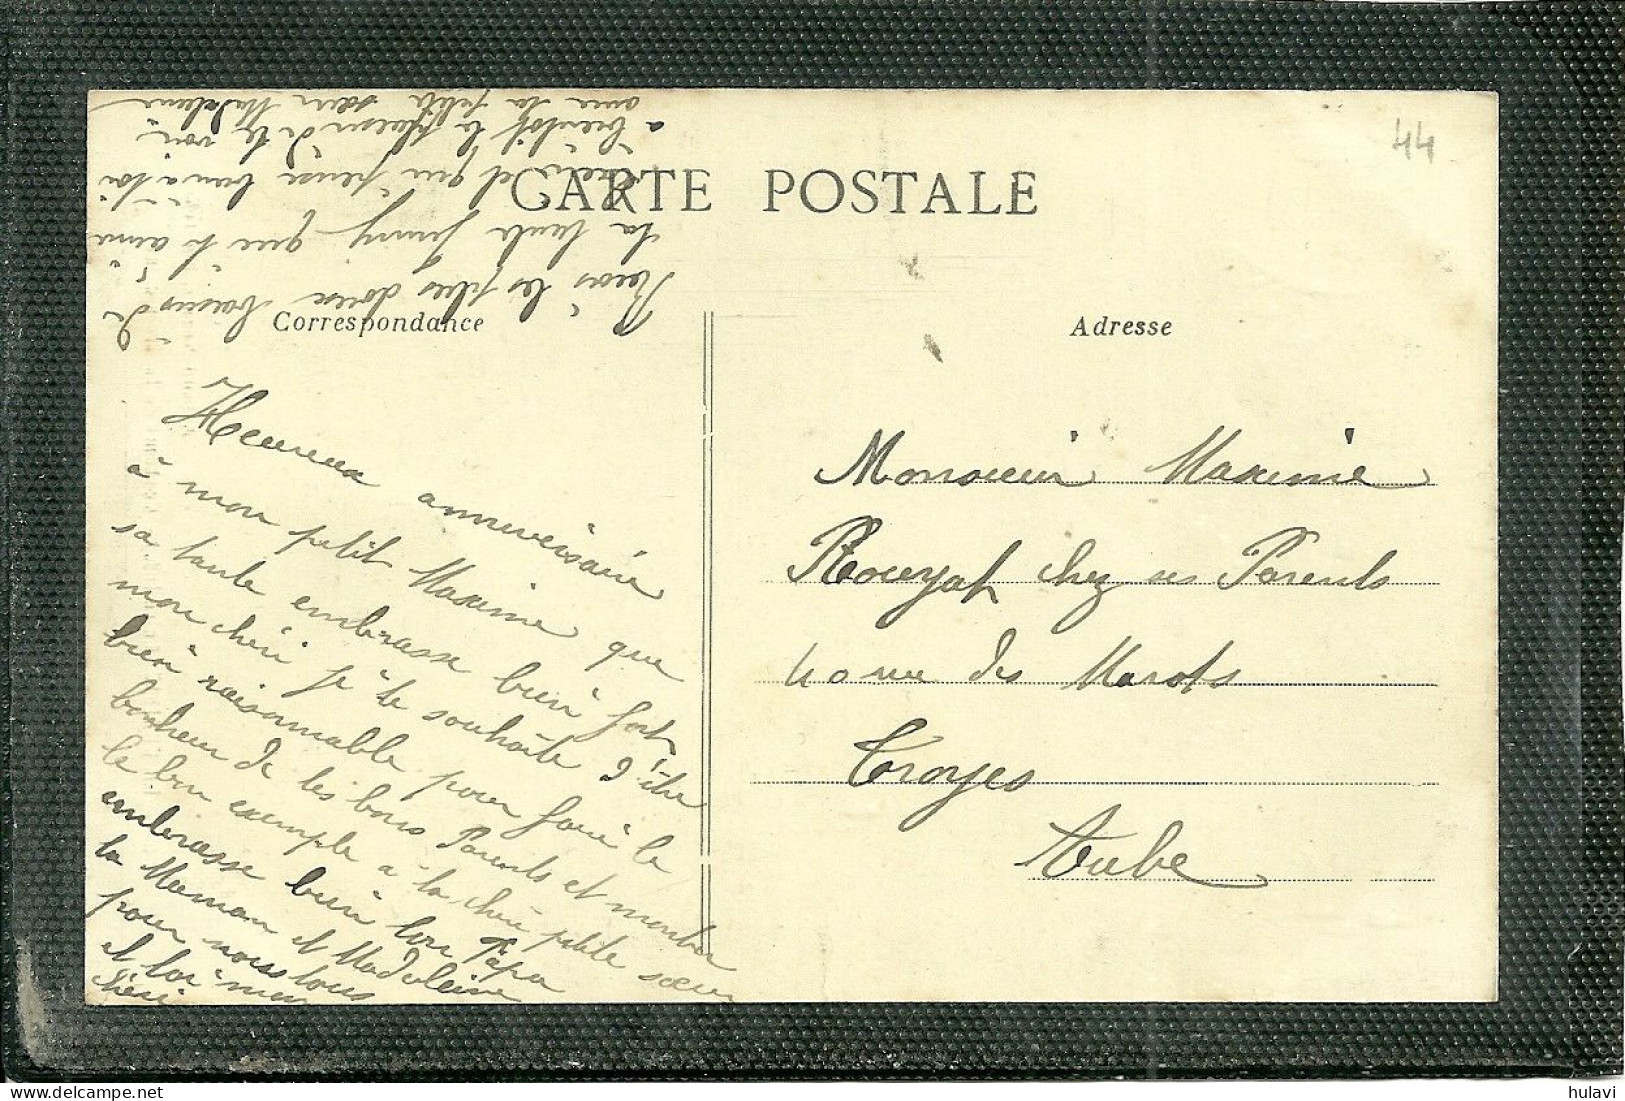 44
CARTE POSTALE
Correspondance
Adresse
Heureux anniversaire
à mon petit Maxime que
sa tante embrasse bien fort
mon chéri je te souhaite d'être
bien raisonnable pour faire le
bonheur de tes bons Parents et montrer
le bon exemple à ta chère petite sœur
embrasse bien ton Papa
ta Maman et Madeleine
pour nous tous
et toi mon
chéri
Reçois les plus doux baisers de
ta tante Jenny qui t'aime
bien et qui pense bien à toi
à bientôt le plaisir de te voir
avec ta petite sœur Madeleine
Monsieur Maxime
Rouyat chez ses Parents
rue des Marots
Troyes
Aube
hulavi